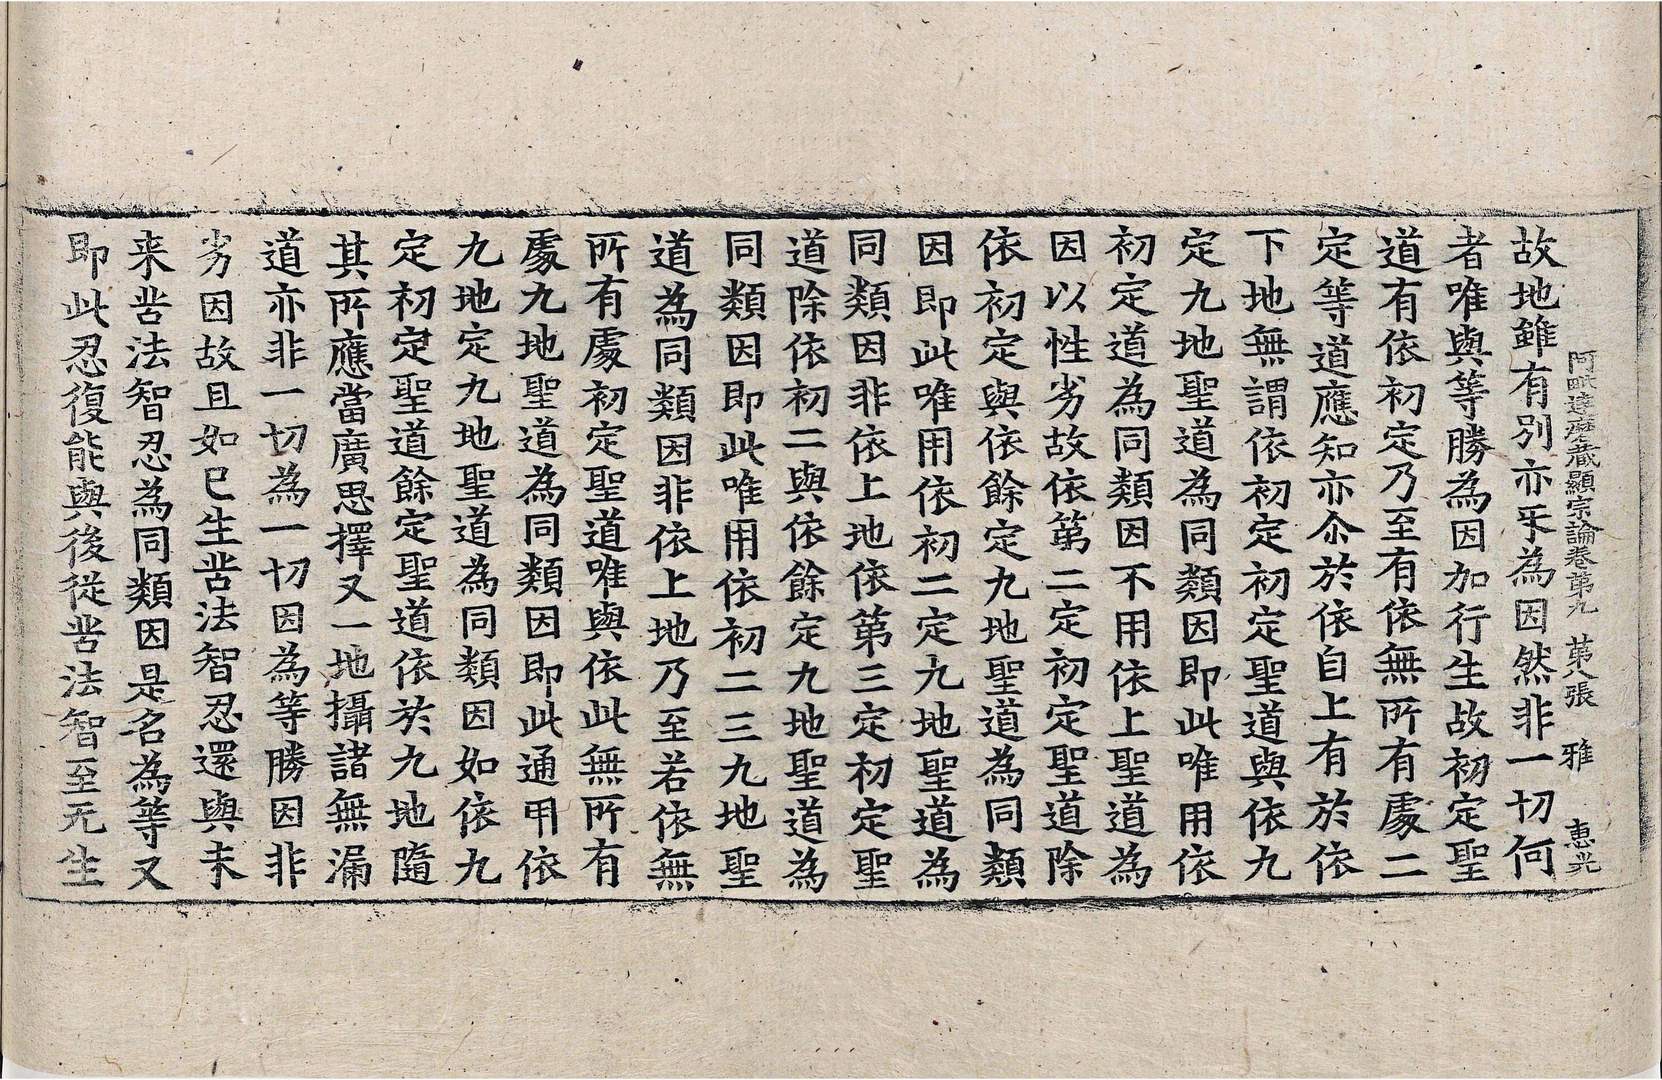 阿毗達磨藏顯宗論卷第九　第八張　雅　惠光
故地雖有別亦互為因然非一切何
者唯與等勝為因加行生故初定聖
道有依初定乃至有依無所有處二
定等道應知亦尒於依自上有於依
下地無謂依初定初定聖道與依九
定九地聖道為同類因即此唯用依
初定道為同類因不用依上聖道為
因以性劣故依第二定初定聖道除
依初定與依餘定九地聖道為同類
因即此唯用依初二定九地聖道為
同類因非依上地依第三定初定聖
道除依初二與依餘定九地聖道為
同類因即此唯用依初二三九地聖
道為同類因非依上地乃至若依無
所有處初定聖道唯與依此無所有
處九地聖道為同類因即此通用依
九地定九地聖道為同類因如依九
定初定聖道餘定聖道依於九地隨
其所應當廣思擇又一地攝諸無漏
道亦非一切為一切因為等勝因非
劣因故且如已生苦法智忍還與未
来苦法智忍為同類因是名為等又
即此忍復能與後從苦法智至无生